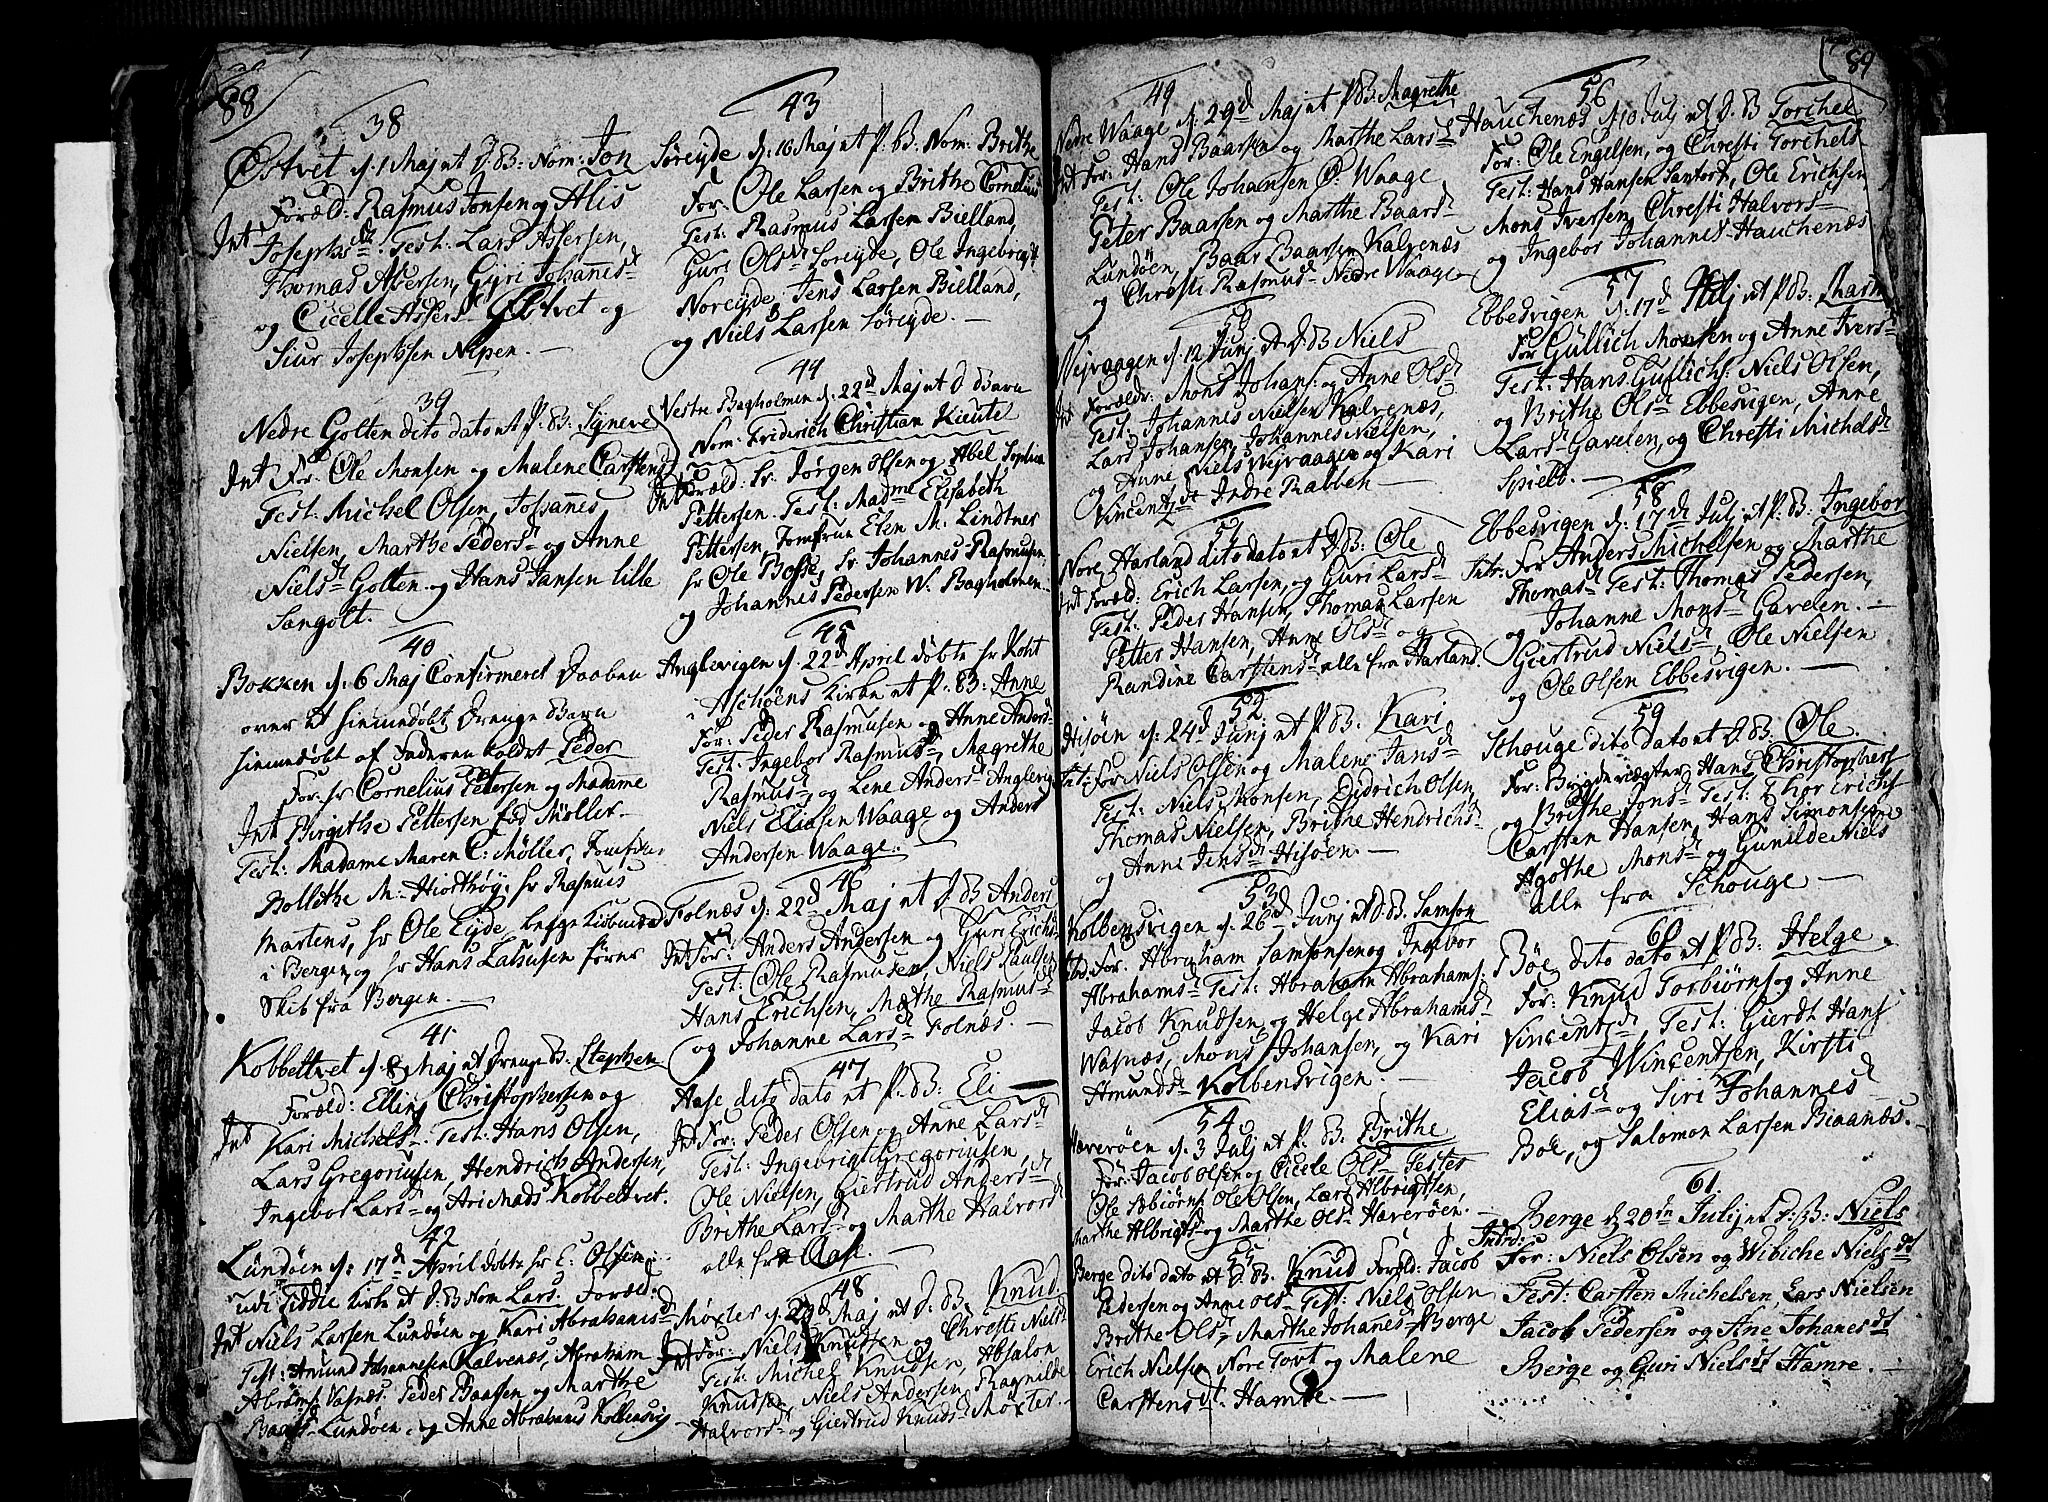 88
38
Østvet d: 1 Maj et D: B: Nom: Jon
Foræld: Rasmus Jonsen og Alis
Int Josephsdt Test: Lars Assersen,
Thomas Assersen, Gyri Johannesd
og Cicelle Assersd Østvet og
Siur Josephsen Nepen. —
39
Nedre Golten dito dato et P: B: Syneve
Int For: Ole Monsen og Malene Carstensd
Test: Michel Olsen, Johannes
Nielsen, Marthe Pedersd og Anne
Nielsd Golten og Hans Jansen lille
Sangolt.
40
Bokken d: 6 Maj Confirmeret Daaben
over et hiemedøbt Drenge Barn
hiemedøbt af Faderen koldet Peder
For: hr Cornelius Petersen og Madame
Int Birgithe Pettersen fød Möller
Test: Madame Maren C: Möller, Jomfrue
Bollethe M: Hiorthøy, hr Rasmus
Martens, hr Ole Eyde, begge
i Bergen, og hr Hans fører
Skib fra Bergen. —
41
Kobbeltvet d: 8 Maj et Drenge B: Stephen
Foræld: Elling Christophersen og
Int Kari Michelsd. Test: Hans Olsen,
Lars Gregoriusen, Hendrich Andersen,
Ingebor Larsd og Kobbeltvet.
42
Lundøen d: 17d April døbte hr E: Olsen
udi Kirke et D: B Nom Lars. Foræld:
Int Niels Larsen Lundøen og Kari Abrahamsd
Test: Amund Johannesen Kalvenæs, Abraham
Vasnæs. Peder Baarsen og Marthe
Baarsd Lundøen, og Anne Abrahams
43
Søreyde d: 16 Maj et P: B: Nom: Brithe
For: Ole Larsen og Brithe Cornelius
Test: Rasmus Larsen Bielland,
Guri Olsd Søreyde, Ole Ingebrigt
Noreyde, Jens Larsen Bielland,
og Niels Larsen Søreyde. —
44
Vestre Bagholmen d: 22d Maj et D Barn
Nom: Friderich Christian
Int Foræld: Sr. Jørgen Olsen og Abel Sophia
Pettersen. Test: Madme Elisabeth
Pettersen, Jomfrue Elen M: Lindtner
hr Ole Bosse, hr Johannes Rasmusen,
og Johannes Pedersen W. Bagholmen.
45
Anglevigen d: 22d April døbte hr
i Aschøens Kirke et P: B: Anne
For: Peder Rasmusen og Anne Anders
Test: Ingebor Rasmusd, Magrethe
Rasmusd, og Lene Andersd Anglevig
Niels Eliasen Waage og Anders
Andersen Waage.
46
Folnæs d: 22d Maj et D: B Anders
Int For: Anders Andersen og Guri Erichs
Test: Ole Rasmusen, Niels Paulsen
Hans Erichsen, Marthe Rasmusd
og Johanne Larsd Folnæs. —
47
Aase dito dato et P: B: Eli —
Int For: Peder Olsen og Anne Larsd
Test: Ingebrigt Gregoriusen,
Ole Nielsen, Giertrud Andersd
Brithe Larsd og Marthe Halvorsd
alle fra Aase. —
48
Møxter d: 23d Maj et D: B: Knud
Int For: Niels Knudsen og Christi Nielsd
Test: Michel Knudsen, Absalon
Knudsen, Niels Andersen, Ragnilde
Halvorsd og Giertrud Knudsd Møxter.
89
49
Nedre Waage d: 29d Maj et P: B: Magrethe
Int For: Hans Baarsen og Marthe Larsd
Test: Ole Johansen Ø: Waage
Peter Baarsen og Marthe Baarsd
Lundøen, Baar Baarsen Kalvenæs
og Christi Rasmusd Nedre Waage
Wejvaagen d. 12 Junj et D: B Niels
Int Forældr: Mons Johans: og Anne Olsd
Test: Johannes Nielsen Kalvenæs,
Lars Johansen, Johannes Nielsen,
og Anne Niels Wejvaagen og Kari
Vincentzdt Indre Rabben —
51
Nore Harland dito dato et D: B: Ole
Int Foræld: Erich Larsen, og Guri Larsd
Test: Peder Hansen, Thomas Larsen
Petter Hansen, Anne Olsd og
Rundine Carstensd alle fra Harland.
52
Hisøen d: 24d Junj et P: B: Kari
Int: For Niels Olsen og Malene Jansd
Test: Niels Monsen, Didrich Olsen,
Thomas Nielsen, Brithe Hendrichsd
og Anne Jensd Hisøen. —
53
Kolbensvigen d: 26d Junj et D: B. Samson
For. Abraham Samsonsen og Ingebor
Abrahamsd Test: Abraham Abrahams:
Jacob Knudsen og Helge Abrahamsd
Wasnæs, Mons Johansen, og Kari
Amundsd Kolbensvigen. —
54
Haverøen d. 3 Julj et P: B: Brithe
For: Jacob Olsen og Cicele Olsd Testes
Ole Olsen, Lars Albrigtsen,
Marthe Albrigtsd og Marthe Olsd Haverøen. —
55
Berge dito dato et D: B. Knud Foræld: Jacob
Pedersen og Anne Olsd Test: Niels Olsen
Brithe Olsd Marthe Johanesd Berge
Erich Nielsen Nore Tovt og Malene
Carstensdt Hamre. —
56
Hauchenæs d 10 Julj et D: B Torchel
For: Ole Engelsen, og Christi Torchels
Test: Hans Hansen Santorv, Ole Erichsen
Mons Iversen, Christi Halvorsd
og Ingebor Johannesd Hauchenæs
57
Ebbesvigen d: 17d Julj et D: B: Rasm
For Gullich Monsen og Anne Iversd
Test: Hans Gullichs. Niels Olsen,
og Brithe Olsd Ebbesvigen, Anne
Larsd Gavelen, og Christi Michelsd
Spield. —
58
Ebbesvigen d: 17d Julj et P: B: Ingebor
Intr: For Anders Michelsen og Marthe
Thomasd Test: Thomas Pedersen,
og Johanne Monsd Gavelen. —
Giertrud Nielsd, Ole Nielsen
og Ole Olsen Ebbesvigen. —
59
Schouge dito dato et D: B: Ole.
For: Bygdevægter Hans Christophers
og Brithe Jonsd Test: Thor Erichs
Carsten Hansen, Hans Simonsen
Agothe Monsd og Gunilde Niels
alle fra Schouge —
60
Böe dito dato et P: B: Helge
For: Knud Torbiørns og Anne
Vincentzd, Test: Gierdt Hans
Jacob Wincentsen, Kirsti
Eliasd og Siri Johannesd
Böe, og Salomon Larsen Biaanæs.
61
Berge d 20de Julij et D: B: Niels
Introd: For: Niels Olsen og Wibiche Nielsdt
Test: Carsten Michelsen, Lars Nielsen
Jacob Pedersen og Ane Johanesdt
Berge og Guri Nielsdt Hamre. —